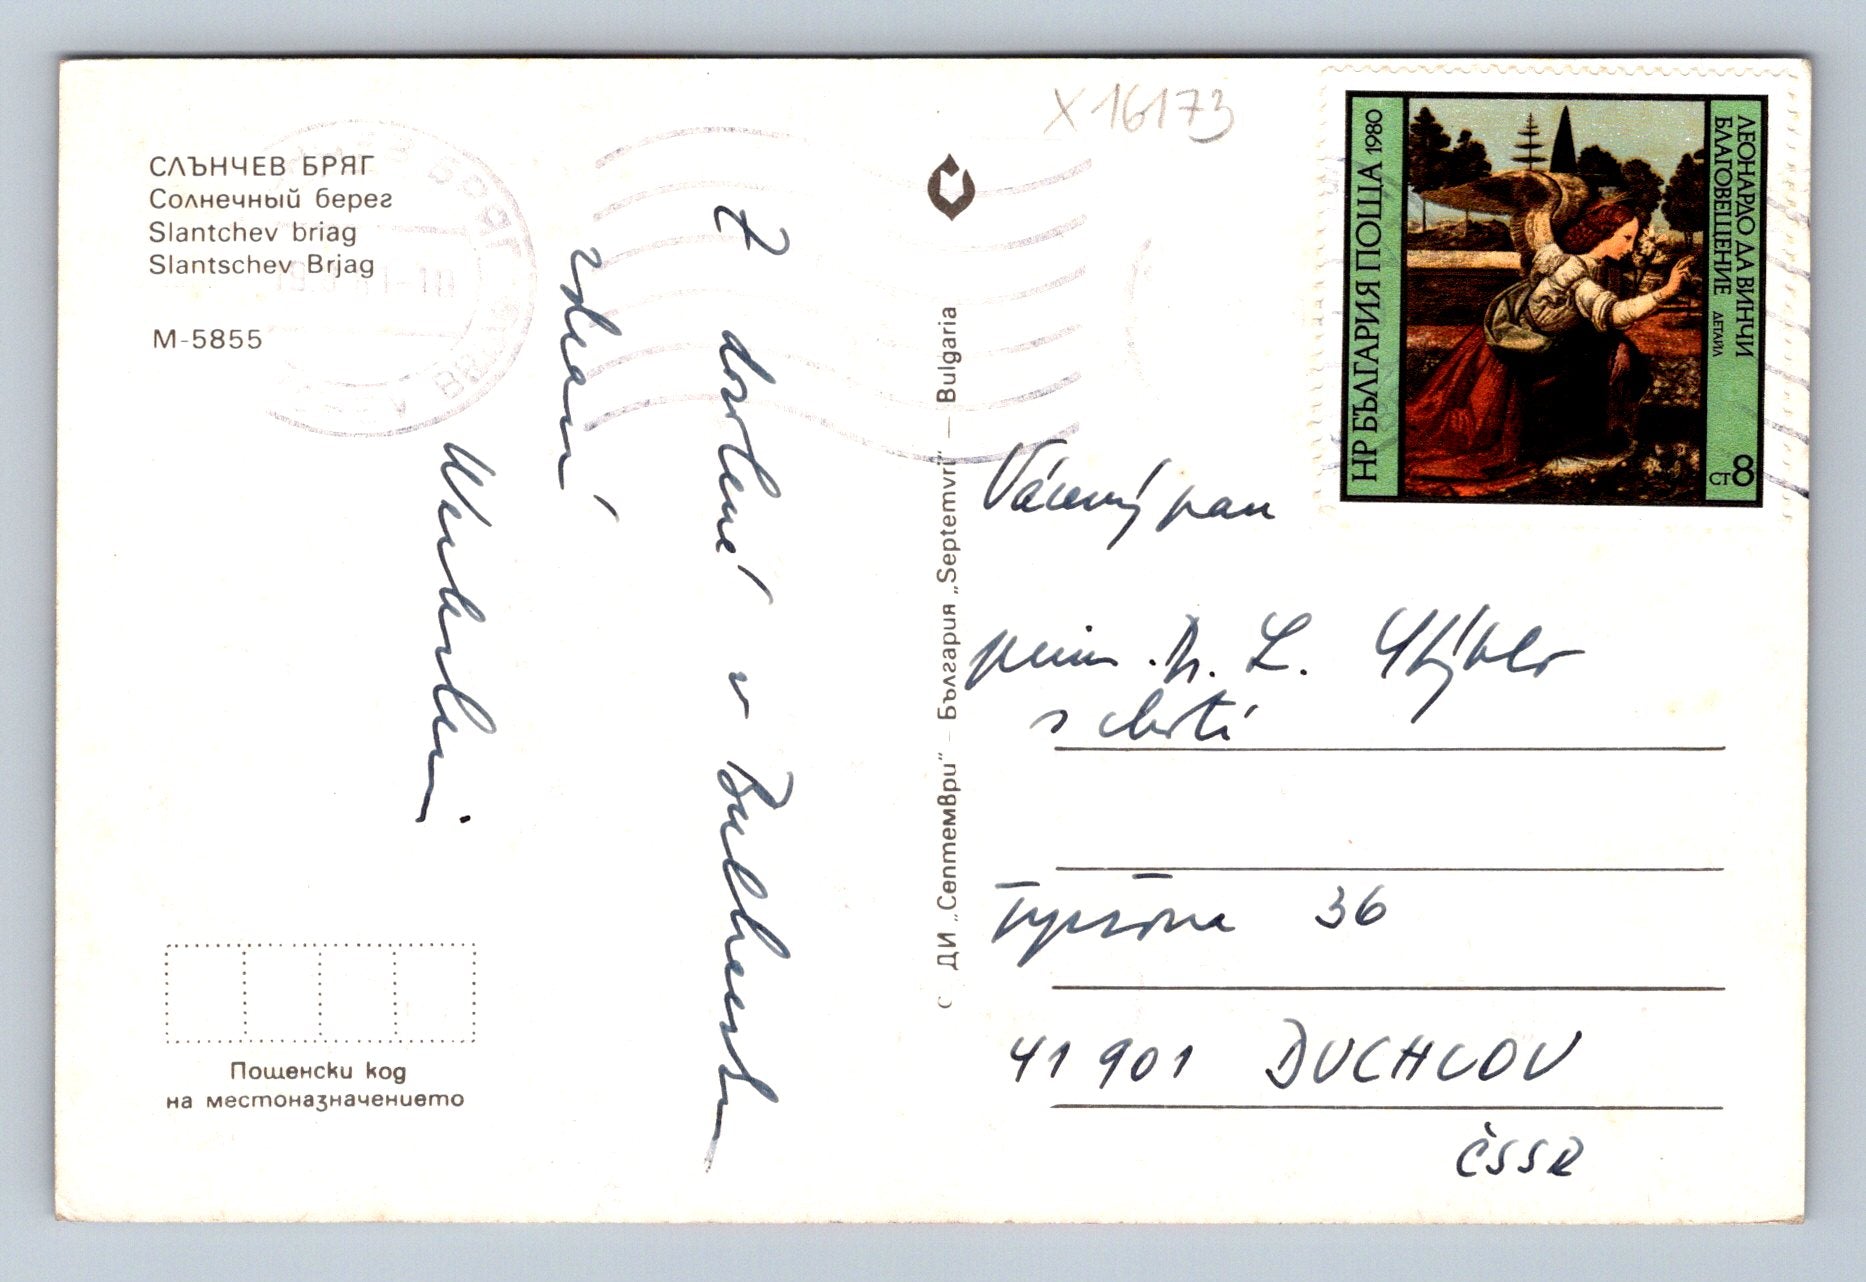 X 16173
СЛЪНЧЕВ БРЯГ
Солнечный берег
Slantchev briag
Slantschev Brjag
М-5855
Z dovolené v Bulharsku
zdraví
ДИ „Септември“ — България „Septemvri“ — Bulgaria
НР БЪЛГАРИЯ ПОЩА 1980
ЛЕОНАРДО ДА ВИНЧИ
БЛАГОВЕЩЕНИЕ ДЕТАЙЛ
8 СТ
Vážený pan
prim. Dr. L.
s chotí
Tyršova 36
41901 DUCHCOV
ČSSR
Пощенски код
на местоназначението